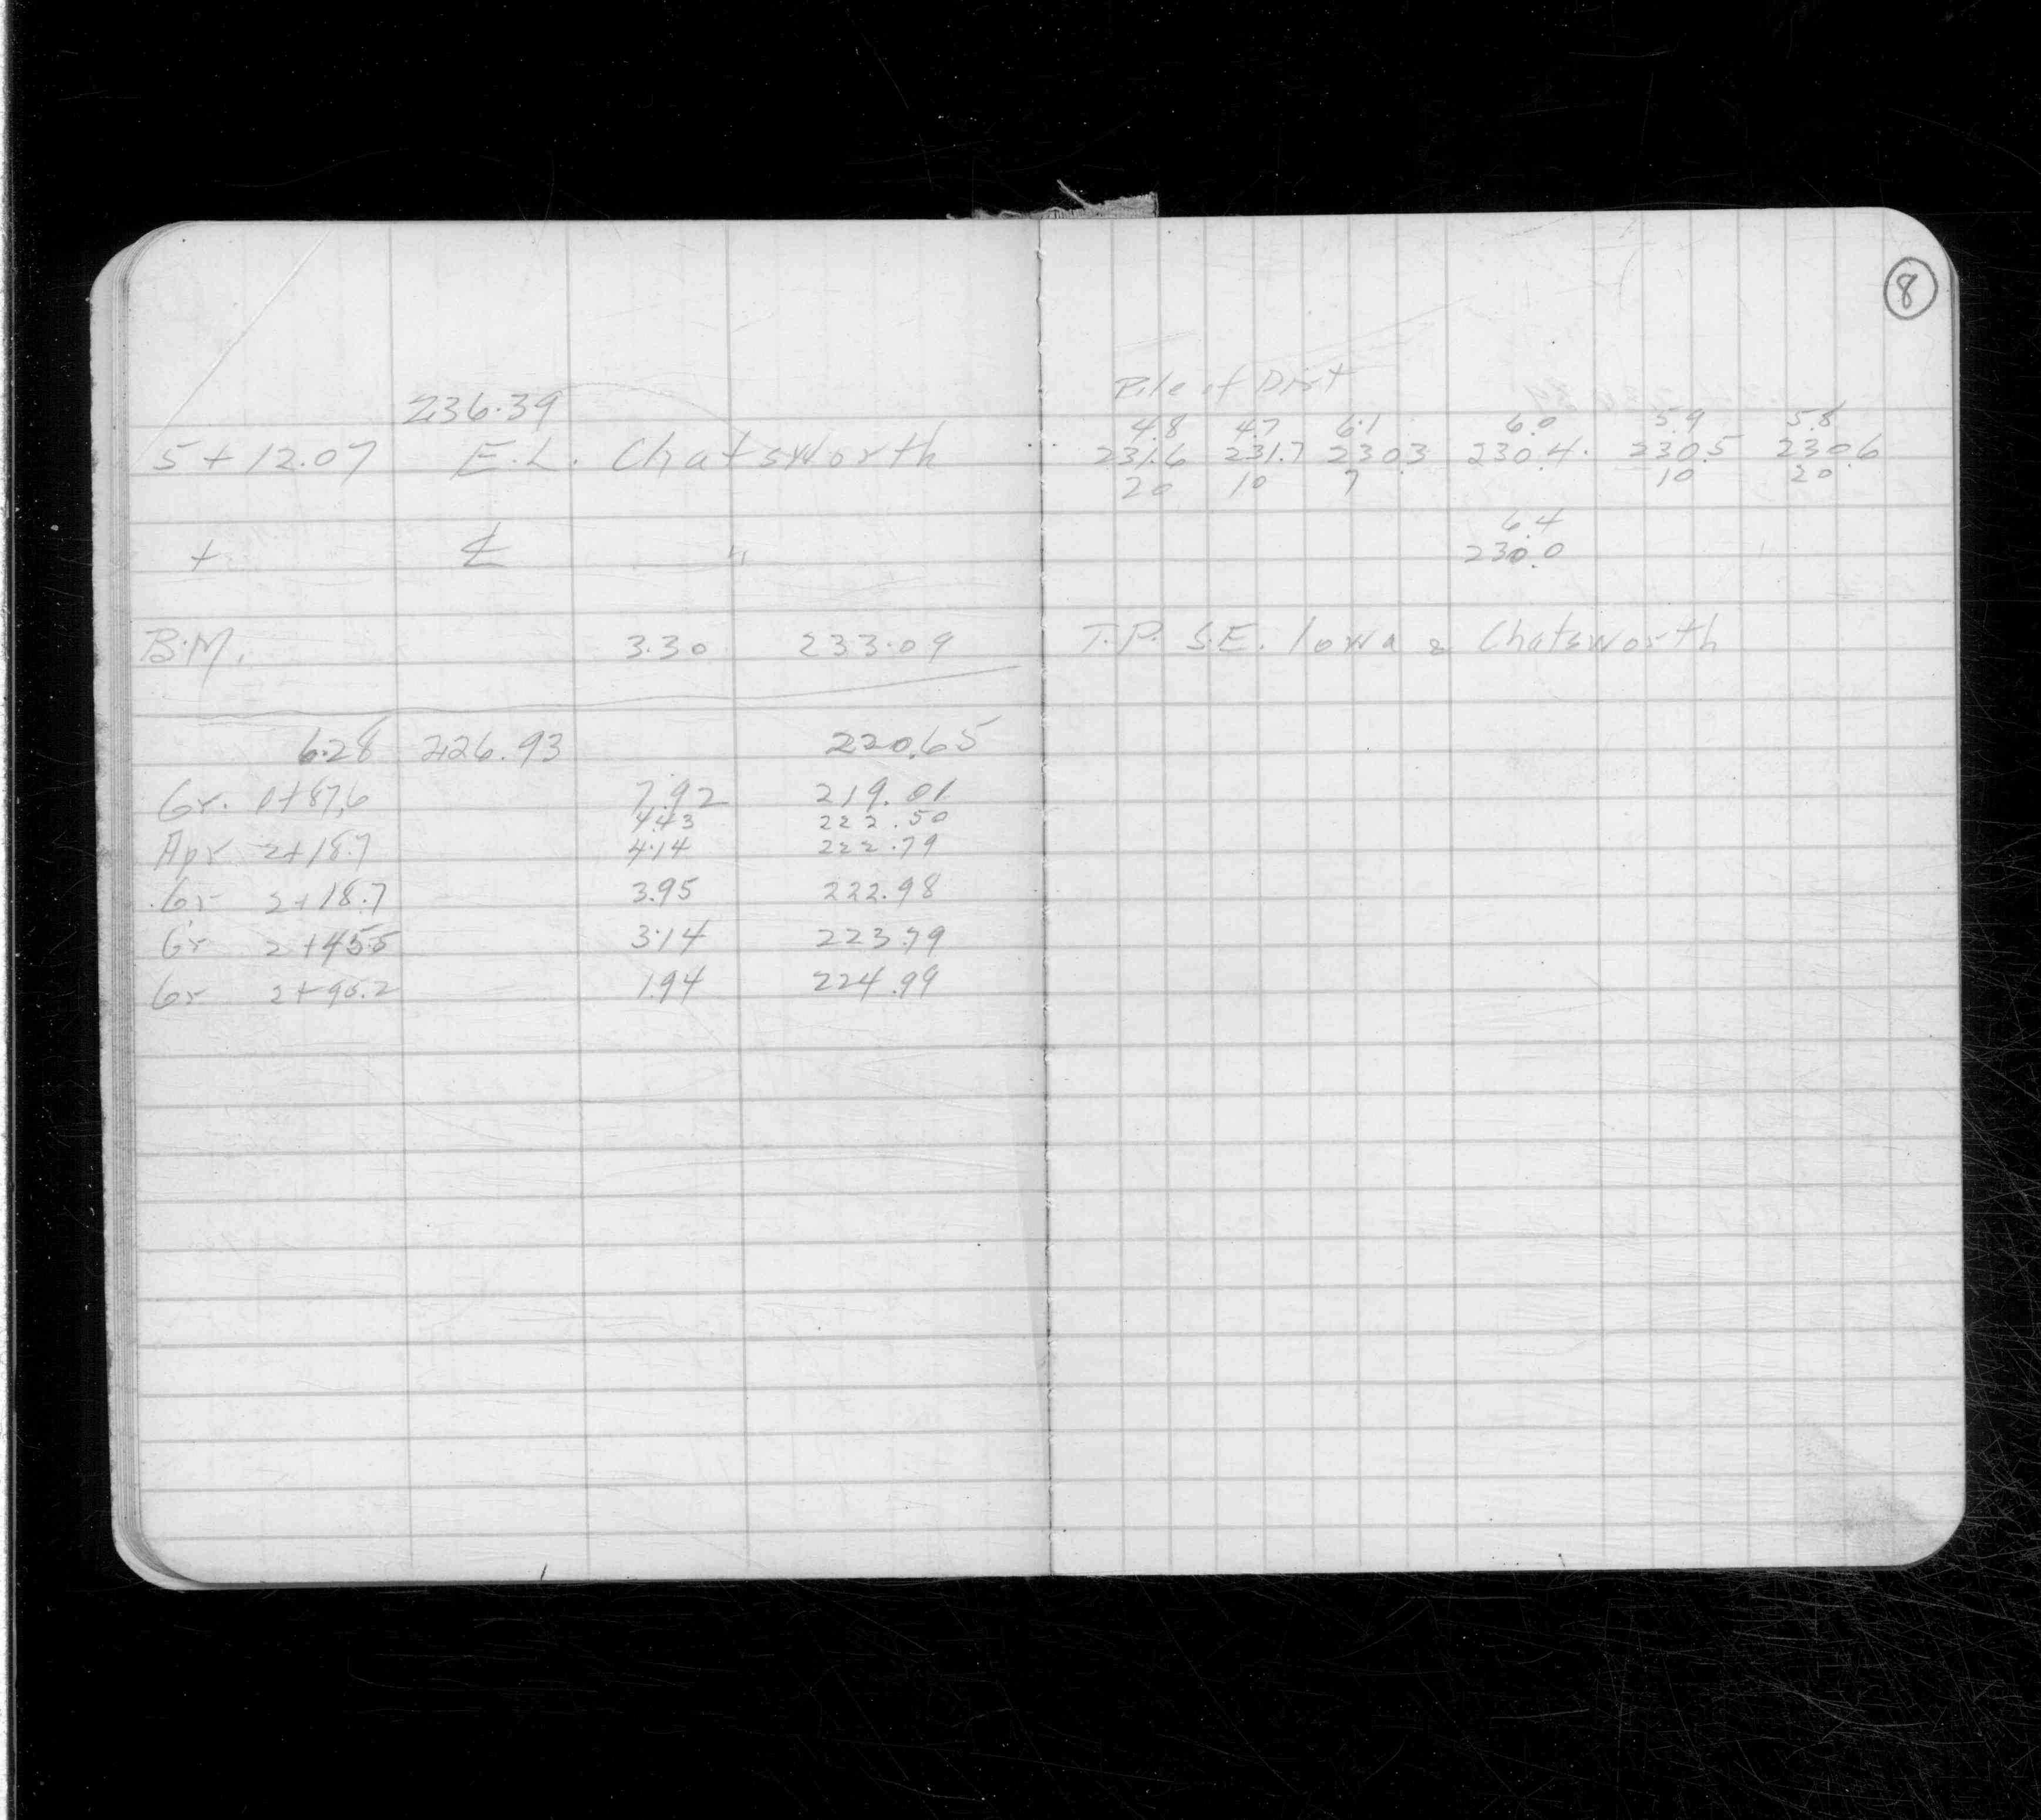 236.39
5+12.07 E.L. Chatsworth
+ ℄ "
B.M. 3.30 233.09
6.28 226.93 220.65
Gr. 1+87.6 7.92 219.01
4.43 222.50
Apr 2+18.7 4.14 222.79
Gr 2+18.7 3.95 222.98
Gr 2+45.5 3.14 223.79
Gr 2+95.2 1.94 224.99
8
Pile of Dirt
4.8 4.7 6.1 6.0 5.9 5.8
231.6 231.7 230.3 230.4 230.5 230.6
20 10 7 10 20
6.4
230.0
T.P. S.E. Iowa & Chatsworth